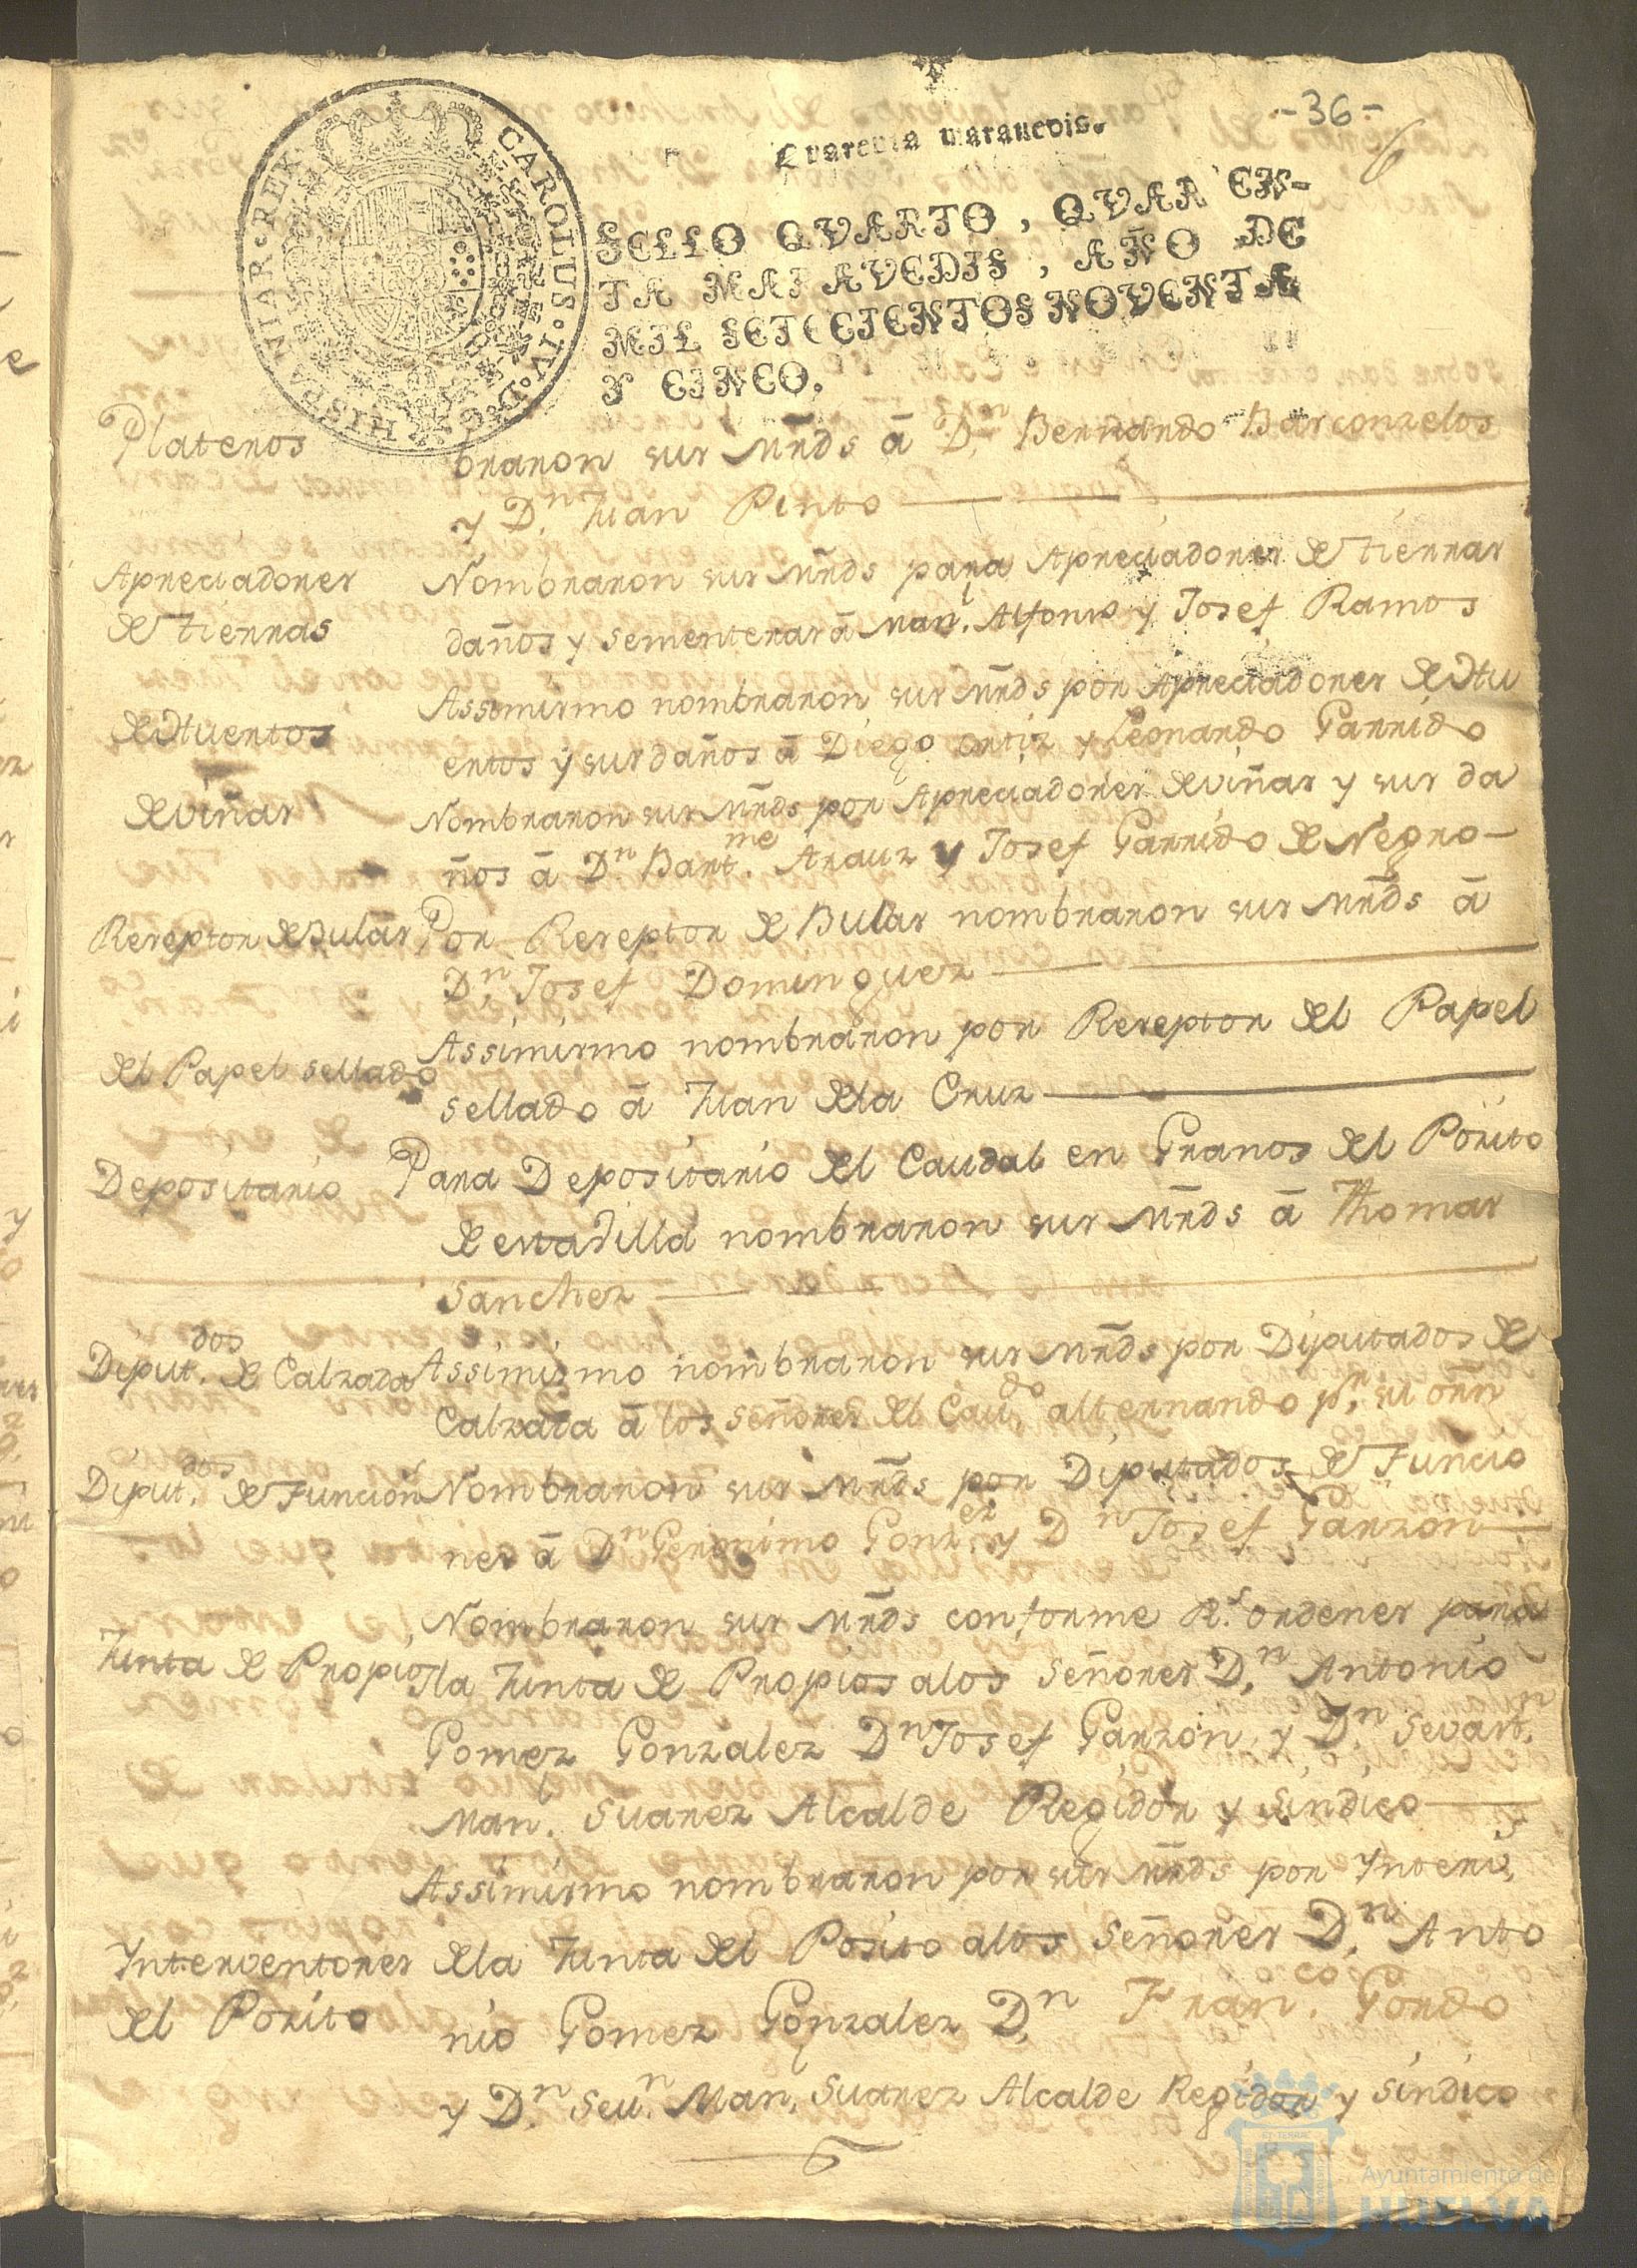 -36-
CAROLUS·IV·D·G· HISPANIAR·REX·
Quarenta maravedis.
SELLO QVARTO, QVAREN-
TA MARAVEDIS, AÑO DE
MIL SETECIENTOS NOVENTA
Y CINCO.
Plateros
braron sus Mrds â Dn. Bernardo Barconzelos
y Dn. Juan Pinto
Apreciadores
de tierras
Nombraron sus Mrds para Apreciadores de tierras
daños y sementeras â Manl. Alfonso y Josef Ramos
de Huertos
Assimismo nombraron sus Mrds por Apreciadores de Hu
ertos y sus daños â Diego Ortiz y Leonardo Garrido
de viñas
Nombraron sus Mrds por Apreciadores de viñas y sus da
ños â Dn. Bartme. Arauz y Josef Garrido de Negro
Rezeptor de Bulas
Por Rezeptor de Bulas nombraron sus Mrds â
Dn. Josef Dominguez
del Papel sellado
Assimismo nombraron por Rezeptor del Papel
sellado â Juan dela Cruz
Depositario
Para Depositario del Caudal en Granos del Posito
de esta Villa nombraron sus Mrds â Thomas
Sanchez
Diputdos. de Calzada
Assimismo nombraron sus Mrds por Diputados de
Calzada â los Señores del Cavdo. alternando pr. su orñ
Diputdos. de Funcions
Nombraron sus Mrds por Diputados de Funcio
nes â Dn Geronimo Gonzez. y Dn Josef Garzon
Junta de Propios
Nombraron sus Mrds conforme Rs. ordenes para
la Junta de Propios alos Señores Dn. Antonio
Gomez Gonzalez Dn Josef Garzon, y Dn. Sevastn.
Manl. Suarez Alcalde Regidor y Sindico
Assimismo nombraron por sus Mrds por Intervs.
Interventores
del Posito
dela Junta del Posito alos Señores Dn. Anto
nio Gomez Gonzalez Dn. Franco. Gordo
y Dn. Sevn. Manl. Suarez Alcalde Regidor y Sindico
Ayuntamiento de
HUELVA